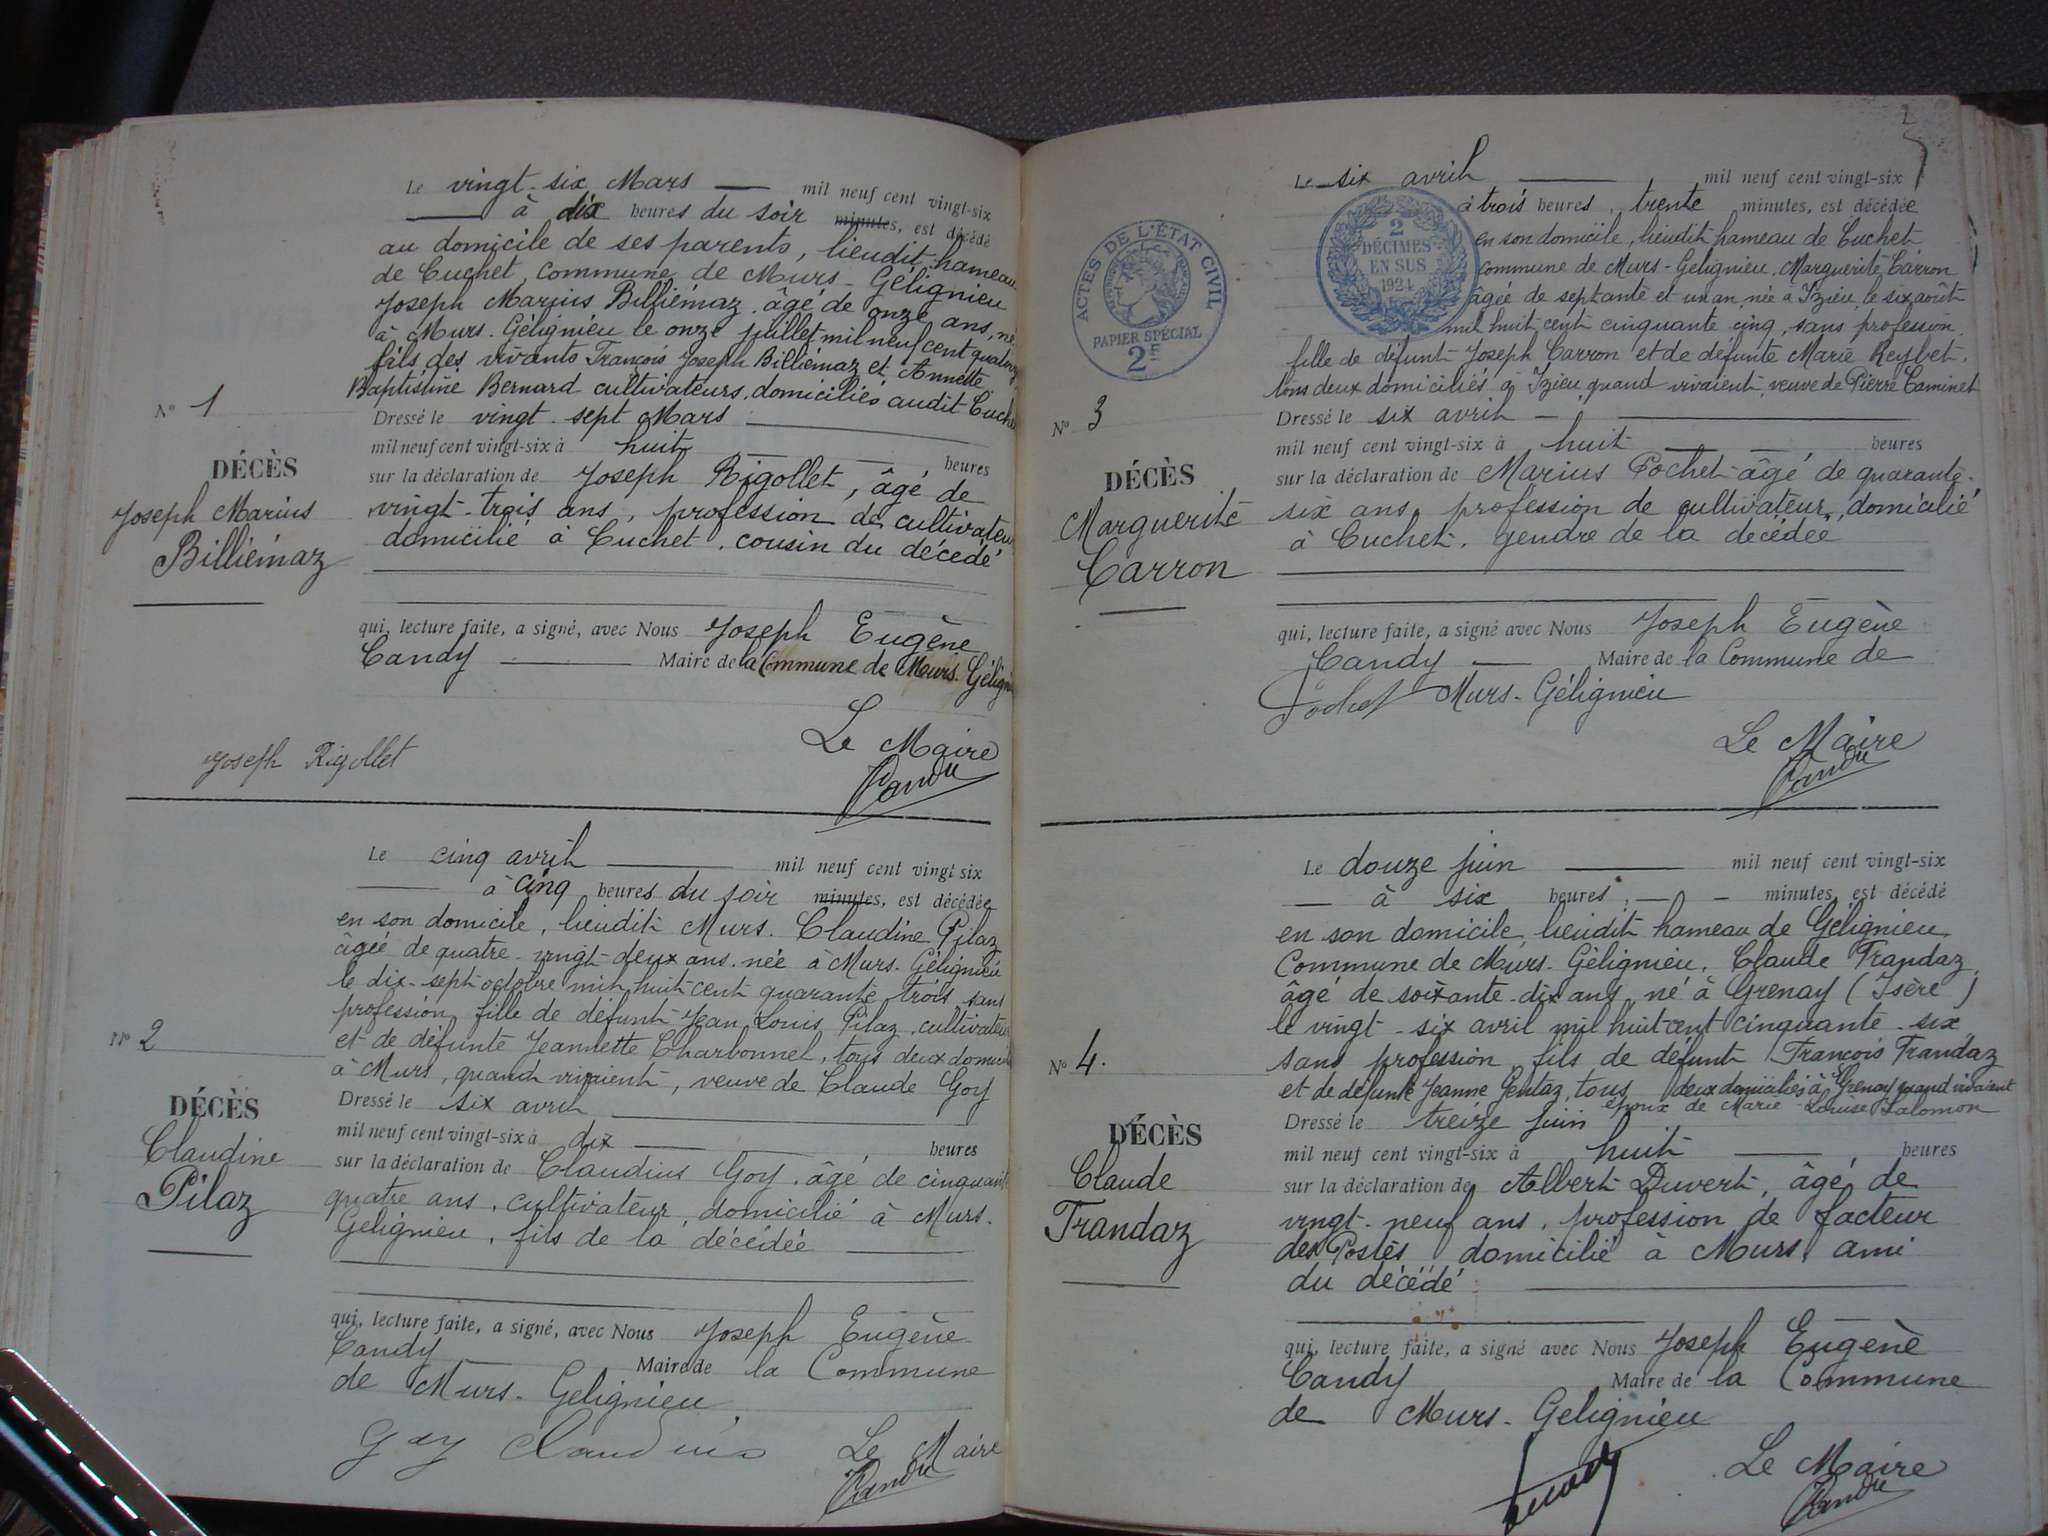 Le vingt-six Mars — mil neuf cent vingt-six
— à dix heures du soir minutes, est décédé
au domicile de ses parents, lieudit hameau
de Cuchet, commune de Murs-Gélignieu
Joseph Marius Billiémaz, âgé de onze ans, né
à Murs-Gélignieu le onze juillet mil neuf cent quatorze
fils des vivants François Joseph Billiémaz et Annette
Baptistine Bernard cultivateurs, domiciliés audit Cuchet
N° 1
Dressé le vingt-sept Mars
mil neuf cent vingt-six à huit heures
DÉCÈS
Joseph Marius
Billiémaz
sur la déclaration de Joseph Rigollet, âgé de
vingt-trois ans, profession de cultivateur
domicilié à Cuchet, cousin du décédé
qui, lecture faite, a signé, avec Nous Joseph Eugène
Candy — Maire de la Commune de Murs-Gélignieu
Le Maire
Joseph Rigollet
Candy
Le cinq avril — mil neuf cent vingt-six
— à cinq heures du soir minutes, est décédée
en son domicile, lieudit Murs. Claudine Pilaz
âgée de quatre-vingt-deux ans, née à Murs-Gélignieu
le dix-sept octobre mil huit cent quarante trois, sans
profession, fille de défunt Jean Louis Pilaz, cultivateur
et de défunte Jeannette Charbonnel, tous deux domiciliés
à Murs, quand vivaient, veuve de Claude Goy
N° 2
Dressé le six avril
mil neuf cent vingt-six à dix — heures
DÉCÈS
Claudine
Pilaz
sur la déclaration de Claudius Goy, âgé de cinquante
quatre ans, cultivateur, domicilié à Murs-
Gélignieu, fils de la décédée
qui, lecture faite, a signé, avec Nous Joseph Eugène
Candy Maire de la Commune
de Murs-Gelignieu
Goy Claudius Le Maire
Candy
2
ACTES DE L'ÉTAT CIVIL
PAPIER SPÉCIAL
2F
2
DÉCIMES
EN SUS
1924
Le six avril — mil neuf cent vingt-six
à trois heures, trente minutes, est décédée
en son domicile, lieudit hameau de Cuchet
commune de Murs-Gélignieu, Marguerite Carron
âgée de septante et un an, née à Izieu, le six août
mil huit cent cinquante cinq, sans profession,
fille de défunt Joseph Carron et de défunte Marie Reybet,
tous deux domiciliés à Izieu quand vivaient, veuve de Pierre Caminet
N° 3
Dressé le six avril —
mil neuf cent vingt-six à huit — heures
DÉCÈS
Marguerite
Carron
sur la déclaration de Marius Pochet âgé de quarante-
six ans, profession de cultivateur, domicilié
à Cuchet, gendre de la décédée
qui, lecture faite, a signé avec Nous Joseph Eugène
Candy — Maire de la Commune de
Pochet Murs-Gélignieu
Le Maire
Candy
Le douze juin — mil neuf cent vingt-six
— à six heures, — — minutes, est décédé
en son domicile, lieudit hameau de Gélignieu,
Commune de Murs-Gélignieu, Claude Trandaz,
âgé de soixante-dix ans, né à Grenay (Isère)
le vingt-six avril mil huit cent cinquante-six
sans profession, fils de défunt François Trandaz
et de défunte Jeanne Gentaz, tous deux domiciliés à Grenay quand vivaient
époux de Marie Louise Salomon
N° 4.
Dressé le treize juin
mil neuf cent vingt-six à huit — heures
DÉCÈS
Claude
Trandaz
sur la déclaration de Albert Duvert, âgé de
vingt-neuf ans, profession de facteur
des Postes domicilié à Murs, ami
du décédé
qui, lecture faite, a signé avec Nous Joseph Eugène
Candy Maire de la Commune
de Murs-Gelignieu
Duvert
Le Maire
Candy